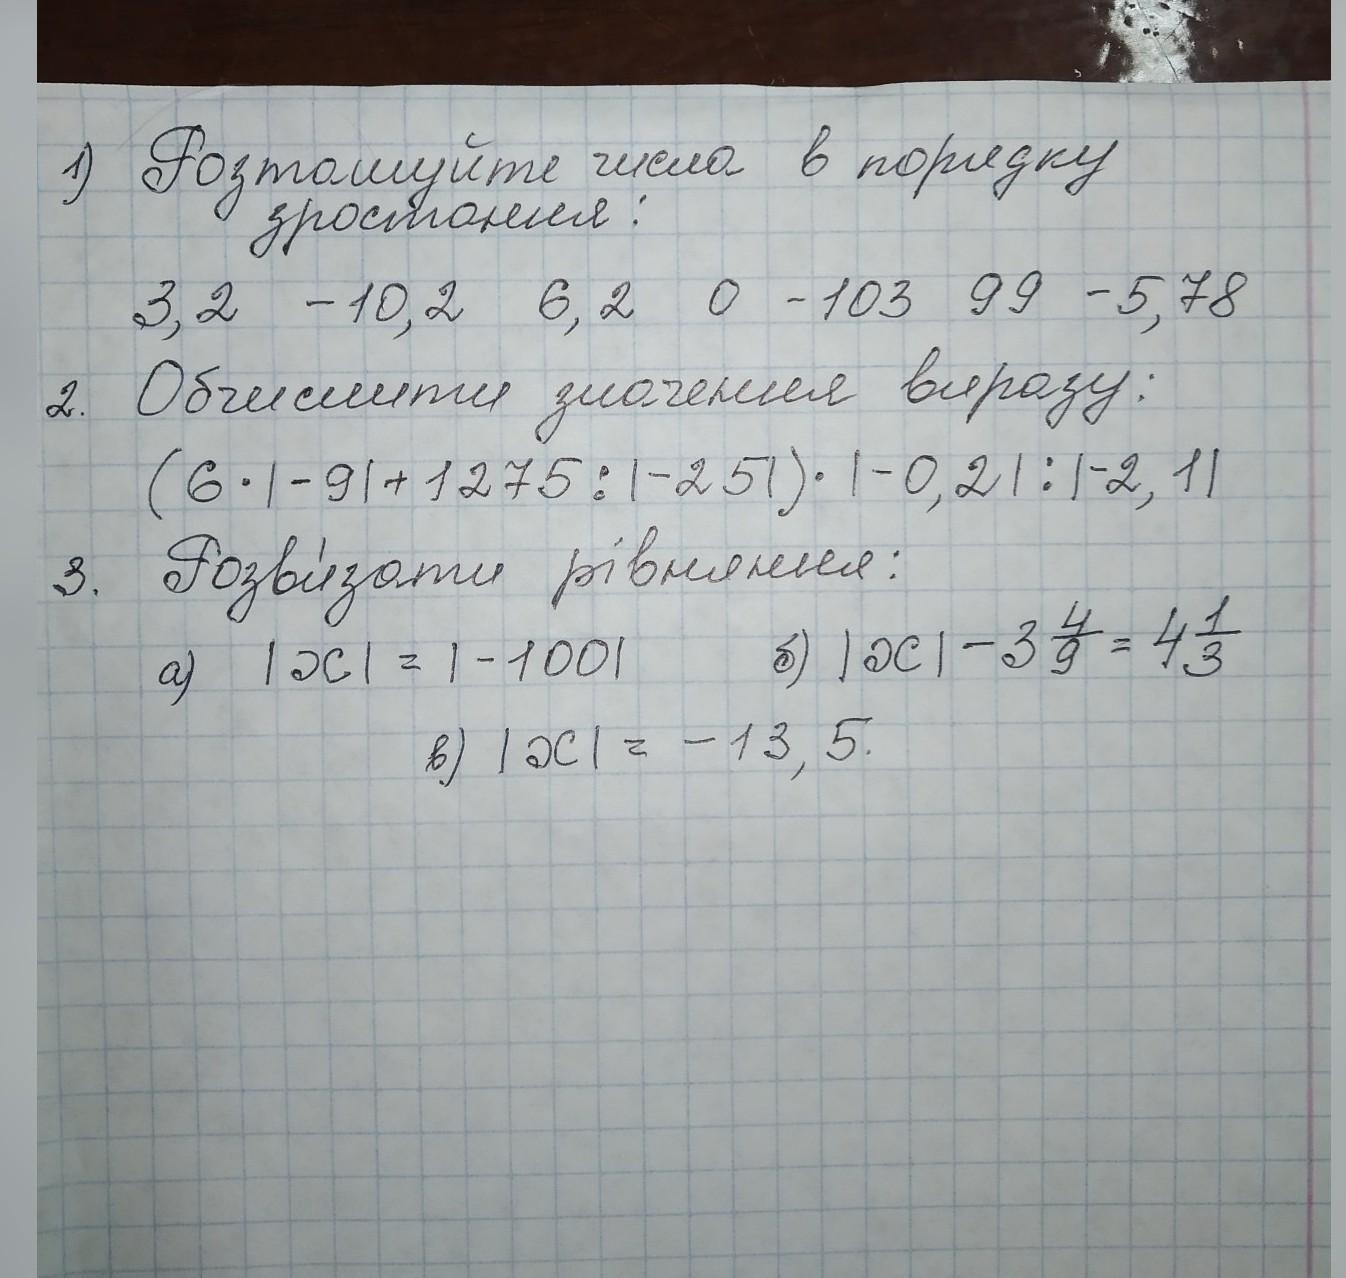 1) Розташуйте числа в порядку
зростання:
3,2 -10,2 6,2 0 -103 99 -5,78
2. Обчислити значення виразу:
(6·|-9|+1275:|-25|)·|-0,2|:|-2,1|
3. Розв'язати рівняння:
а) |x| = |-100| б) |x| - 3 4/9 = 4 1/3
в) |x| = -13,5.